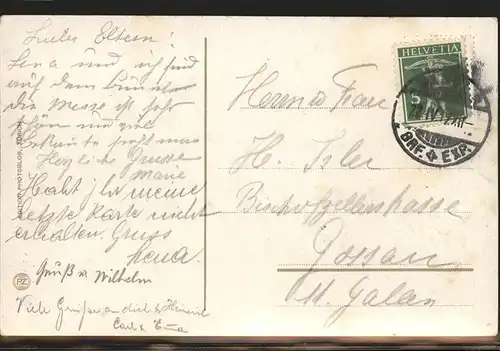 Liebe Eltern!
Lena und ich sind
auf dem
Die Messe ist sehr
schön und viel
Herzliche Grüsse
Marie
Habt ihr meine
letzte Karte nicht
erhalten. Gruss
Lena.
Gruß v Wilhelm
Viele Grüsse an dich & Heinrich
Carl & Emma
PHOTOGLOB, ZÜRICH
PZ
HELVETIA
5
BRF. EXP.
Herrn & Frau
H. Isler
Bischofzellerstrasse
Gossau
St. Galen